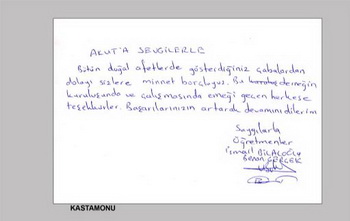 AKUT'A SEVGİLERLE
Bütün doğal afetlerde gösterdiğiniz çabalardan
dolayı sizlere minnet borçluyuz. Bu derneğin
kuruluşunda ve çalışmasında emeği geçen herkese
teşekkürler. Başarılarınızın artarak devamını dilerim
Saygılarla
Öğretmenler
İsmail BİLALOĞLU
GERÇEK
KASTAMONU